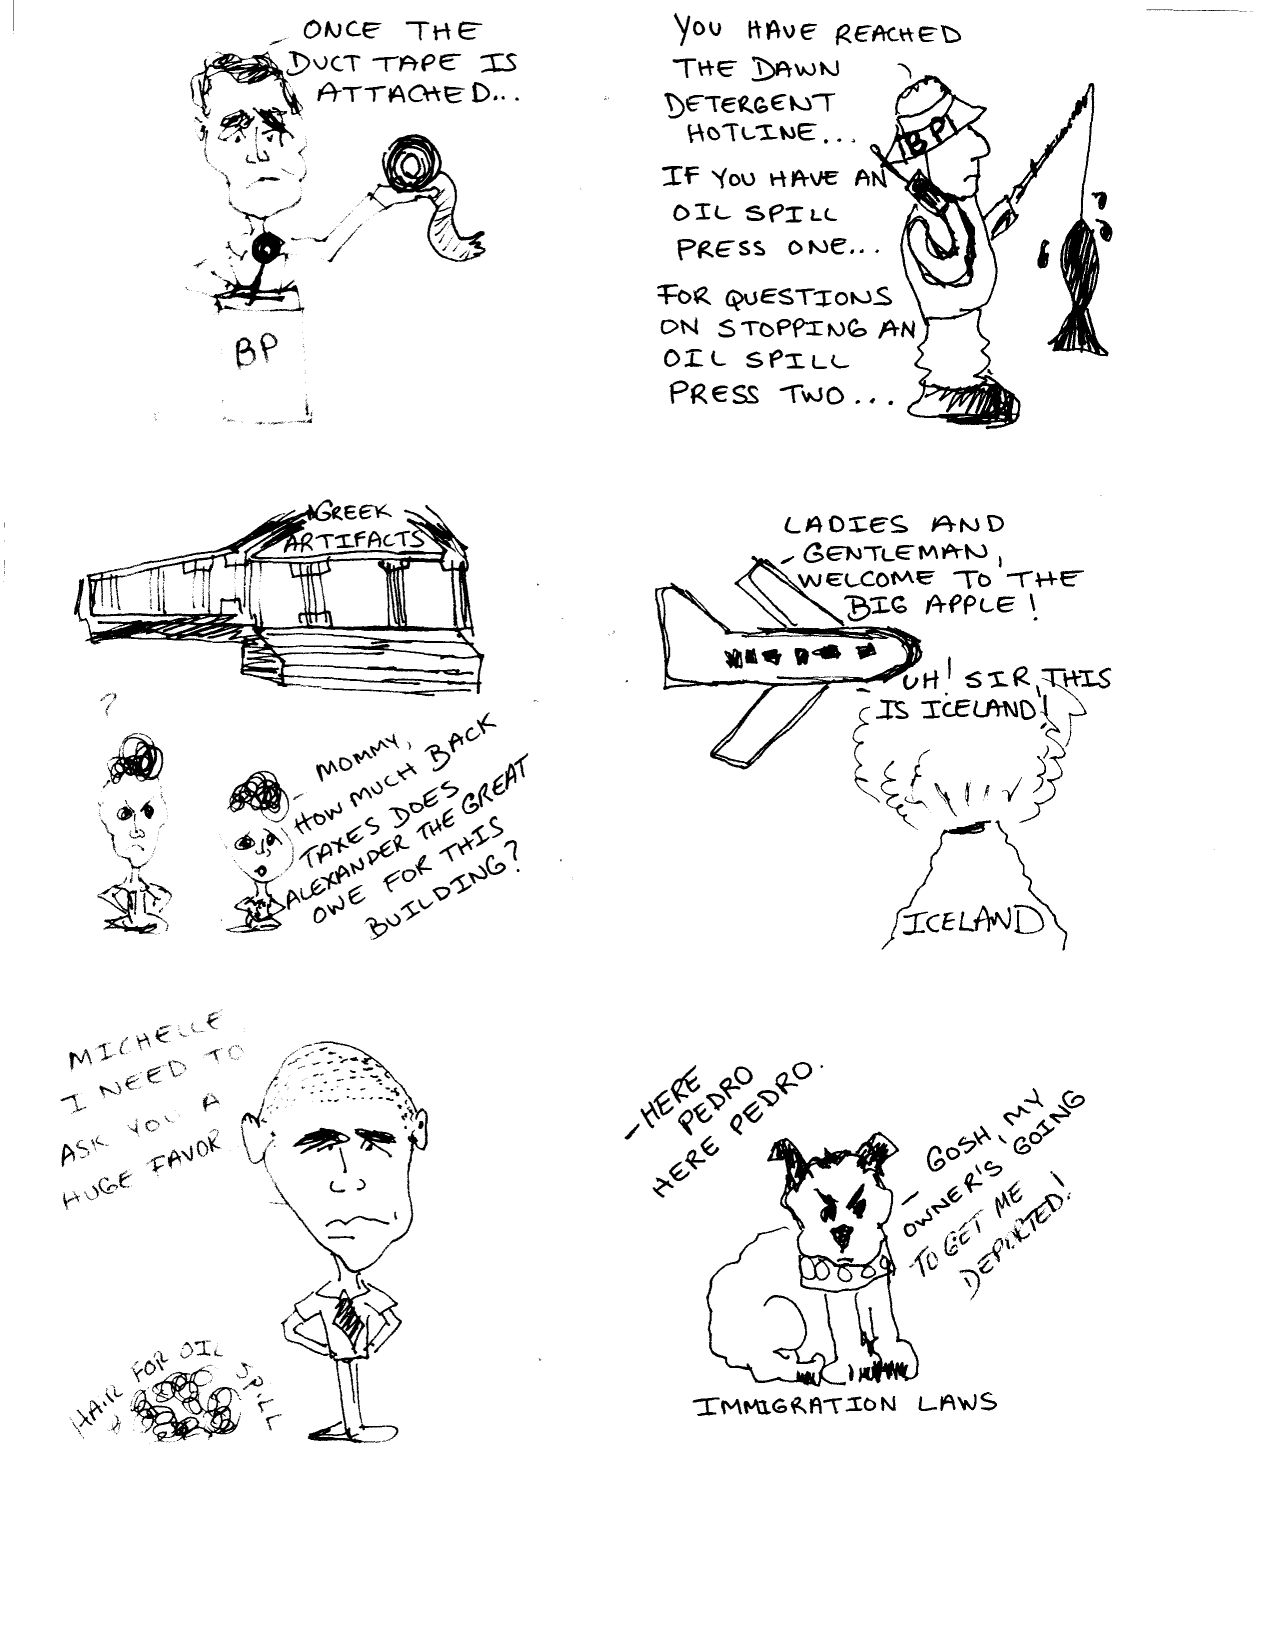 ONCE THE
DUCT TAPE IS
ATTACHED...
BP
YOU HAVE REACHED
THE DAWN
DETERGENT
HOTLINE...
IF YOU HAVE AN
OIL SPILL
PRESS ONE...
FOR QUESTIONS
ON STOPPING AN
OIL SPILL
PRESS TWO...
BP
GREEK
ARTIFACTS
?
MOMMY,
HOW MUCH BACK
TAXES DOES
ALEXANDER THE GREAT
OWE FOR THIS
BUILDING?
LADIES AND
GENTLEMAN,
WELCOME TO THE
BIG APPLE!
UH! SIR, THIS
IS ICELAND!
ICELAND
MICHELLE
I NEED TO
ASK YOU A
HUGE FAVOR
HAIR FOR OIL SPILL
HERE
PEDRO
HERE PEDRO.
GOSH, MY
OWNER'S GOING
TO GET ME
DEPORTED!
IMMIGRATION LAWS